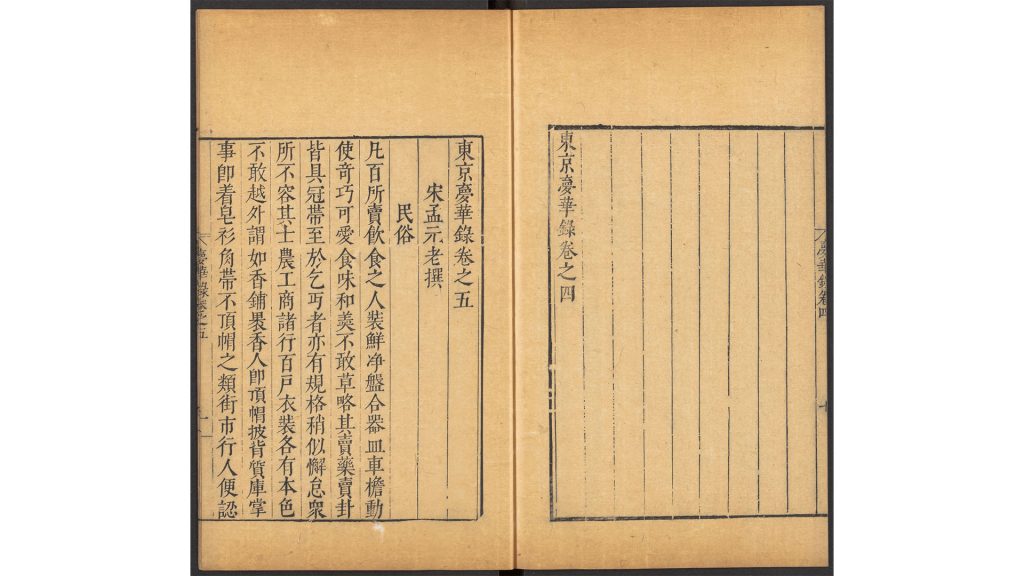 夢華錄卷四
東京夢華錄卷之四
東京夢華錄卷之五
宋孟元老撰
民俗
凡百所賣飲食之人裝鮮净盤合器皿車檐動
使竒巧可愛食味和羹不敢草略其賣藥賣卦
皆具冠帶至於乞丐者亦有規格稍似懈怠衆
所不容其士農工商諸行百戸衣裝各有本色
不敢越外謂如香鋪裹香人卽頂帽披背質庫掌
事卽着皂衫角帶不頂帽之類街市行人便認
夢華錄卷之五